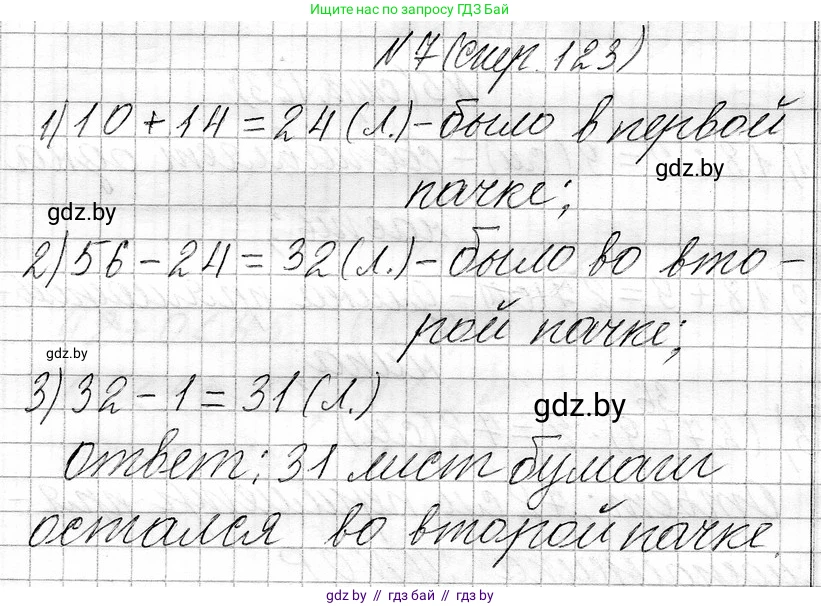 Ищите нас по запросу ГДЗ Бай
№7 (стр. 123)
1) 10 + 14 = 24 (л.) - было в первой
gdz.by
пачке;
gdz.by
2) 56 - 24 = 32 (л.) - было во вто-
рой пачке;
gdz.by
3) 32 - 1 = 31 (л.)
gdz.by
ответ: 31 лист бумаги
остался во второй пачке.
gdz.by // гдз бай // гдз by